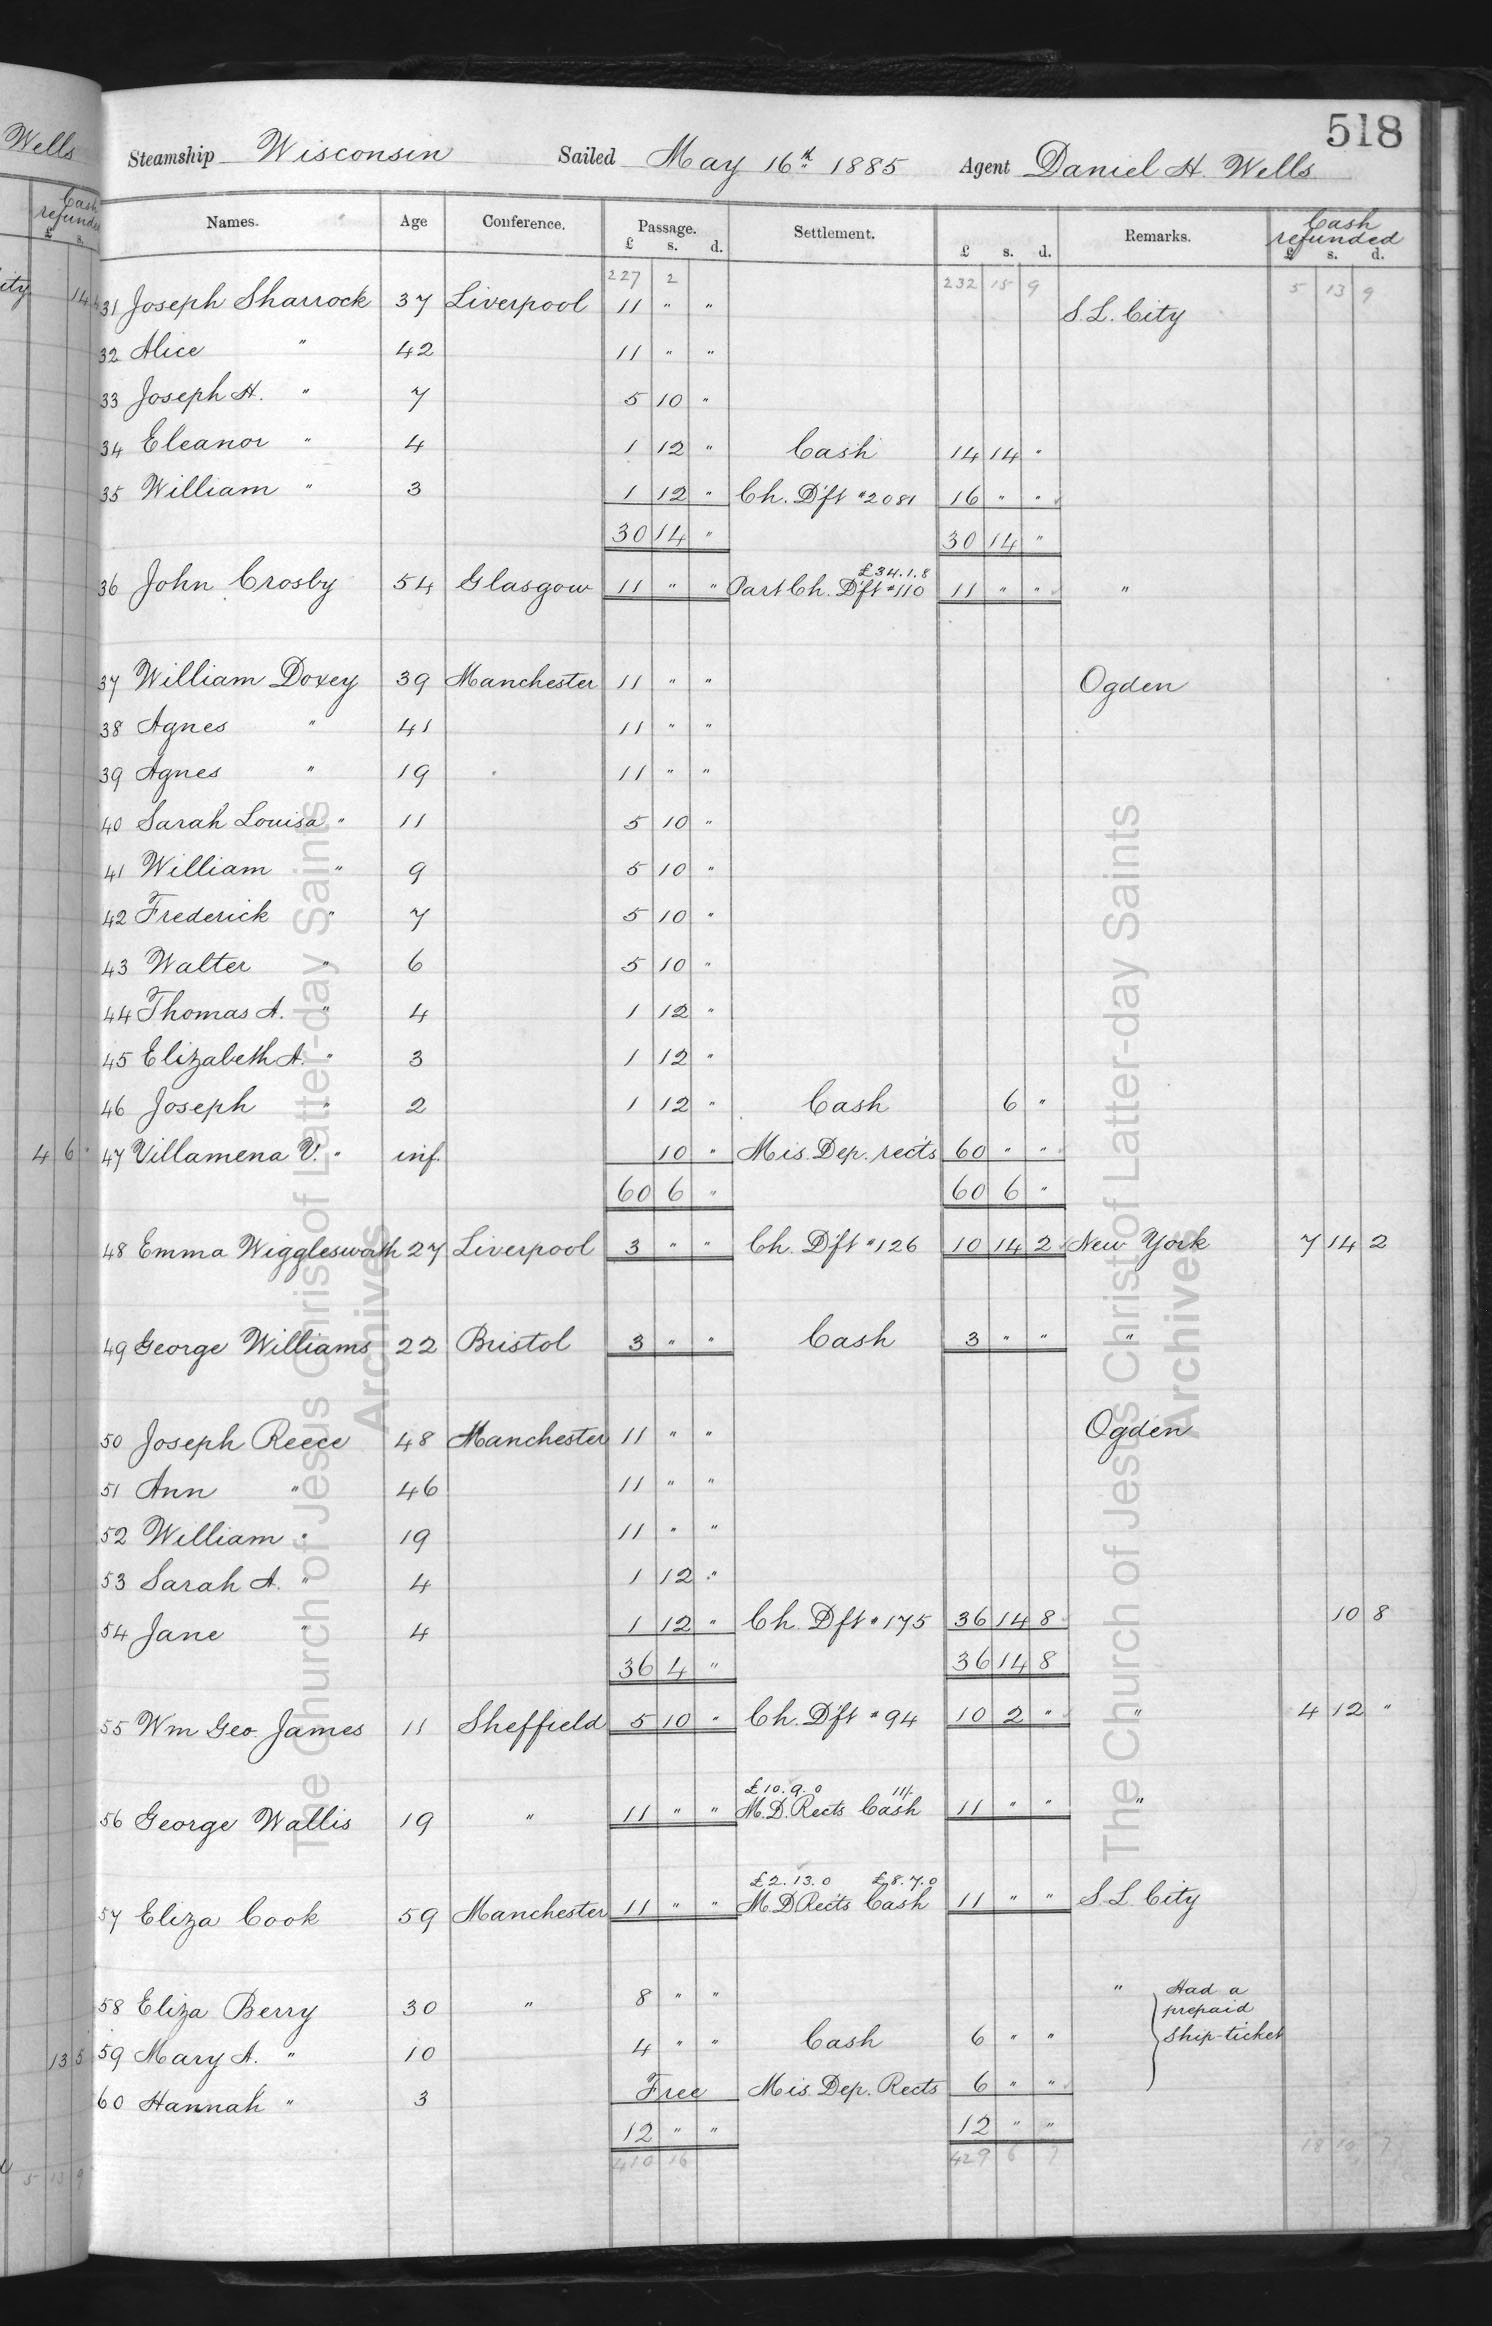 Wells
Cash
refunded
£ s.
ity 14
4 6 "
13 5
5 13 9
518
Steamship Wisconsin Sailed May 16th 1885 Agent Daniel H. Wells
Names. Age Conference. Passage. Settlement. Remarks. Cash refunded
£ s. d. £ s. d. £ s. d.
227 2 232 15 9 5 13 9
31 Joseph Sharrock 37 Liverpool 11 " " S. L. City
32 Alice " 42 11 " "
33 Joseph H. " 7 5 10 "
34 Eleanor " 4 1 12 " Cash 14 14 "
35 William " 3 1 12 " Ch. D'ft #2081 16 " "
30 14 " 30 14 "
£34.1.8
36 John Crosby 54 Glasgow 11 " " Part Ch. D'ft #110 11 " " "
37 William Doxey 39 Manchester 11 " " Ogden
38 Agnes " 41 11 " "
39 Agnes " 19 11 " "
40 Sarah Louisa " 11 5 10 "
41 William " 9 5 10 "
42 Frederick " 7 5 10 "
43 Walter " 6 5 10 "
44 Thomas A. " 4 1 12 "
45 Elizabeth A. " 3 1 12 "
46 Joseph " 2 1 12 " Cash 6 "
47 Villamena V. " inf. 10 " Mis. Dep. rects 60 " "
60 6 " 60 6 "
48 Emma Wigglesworth 27 Liverpool 3 " " Ch. D'ft #126 10 14 2 New York 7 14 2
49 George Williams 22 Bristol 3 " " Cash 3 " " "
50 Joseph Reece 48 Manchester 11 " " Ogden
51 Ann " 46 11 " "
52 William " 19 11 " "
53 Sarah A. " 4 1 12 "
54 Jane " 4 1 12 " Ch. Dft #175 36 14 8 10 8
36 4 " 36 14 8
55 Wm Geo. James 11 Sheffield 5 10 " Ch. D'ft #94 10 2 " " 4 12 "
£10.9.0 11/-
56 George Wallis 19 " 11 " " M.D. Rects Cash 11 " " "
£2.13.0 £8.7.0
57 Eliza Cook 59 Manchester 11 " " M. D Rects Cash 11 " " S. L City
58 Eliza Berry 30 " 8 " " " Had a
prepaid
59 Mary A. " 10 4 " " Cash 6 " " ship-ticket
60 Hannah " 3 Free Mis. Dep. Rects 6 " "
12 " " 12 " "
410 16 429 6 7 18 10 7
The Church of Jesus Christ of Latter-day Saints
Archives
The Church of Jesus Christ of Latter-day Saints
Archives